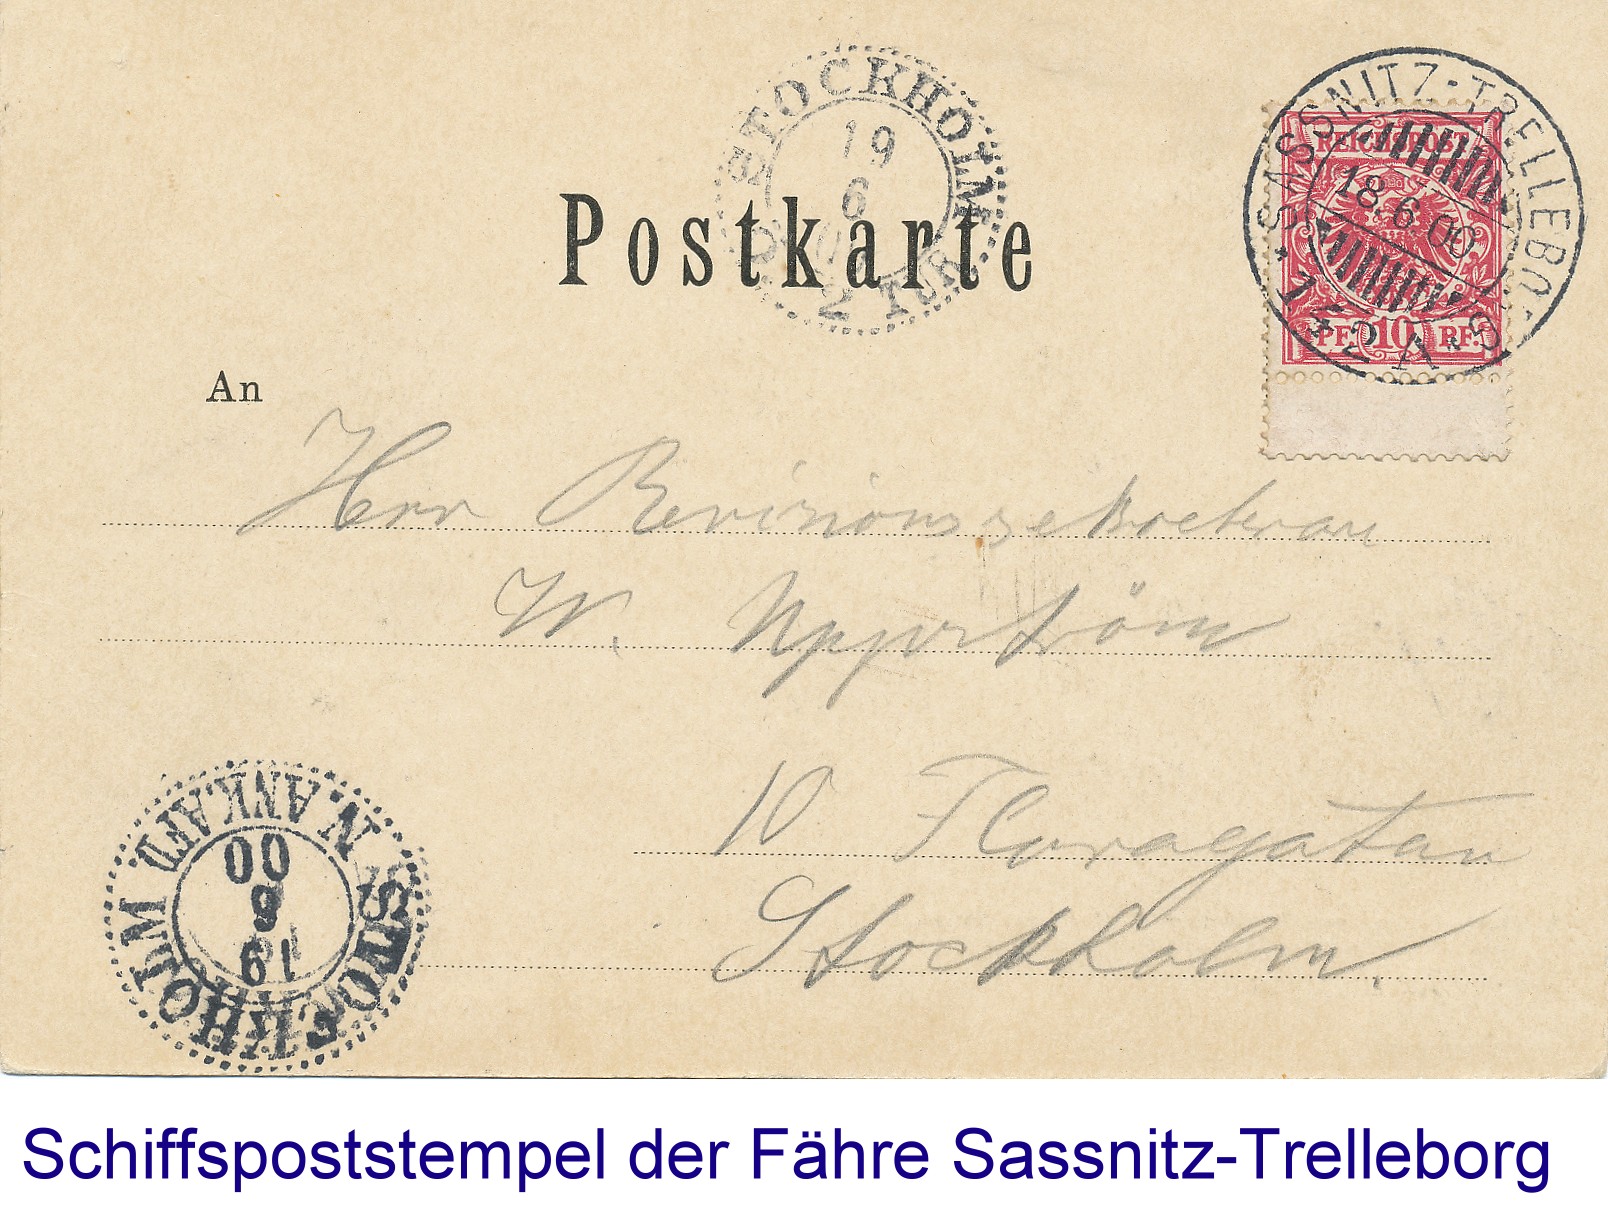 STOCKHOLM
19
6
2 TUR
SASSNITZ-TRELLEBORG
18.6.00
REICHSPOST
PF. 10 PF.
Postkarte
An
Herr Revisionssekreterare
W. Uppström
10 Floragatan
Stockholm.
STOCKHOLM
N. ANK. AFD.
19
6
00
Schiffspoststempel der Fähre Sassnitz-Trelleborg